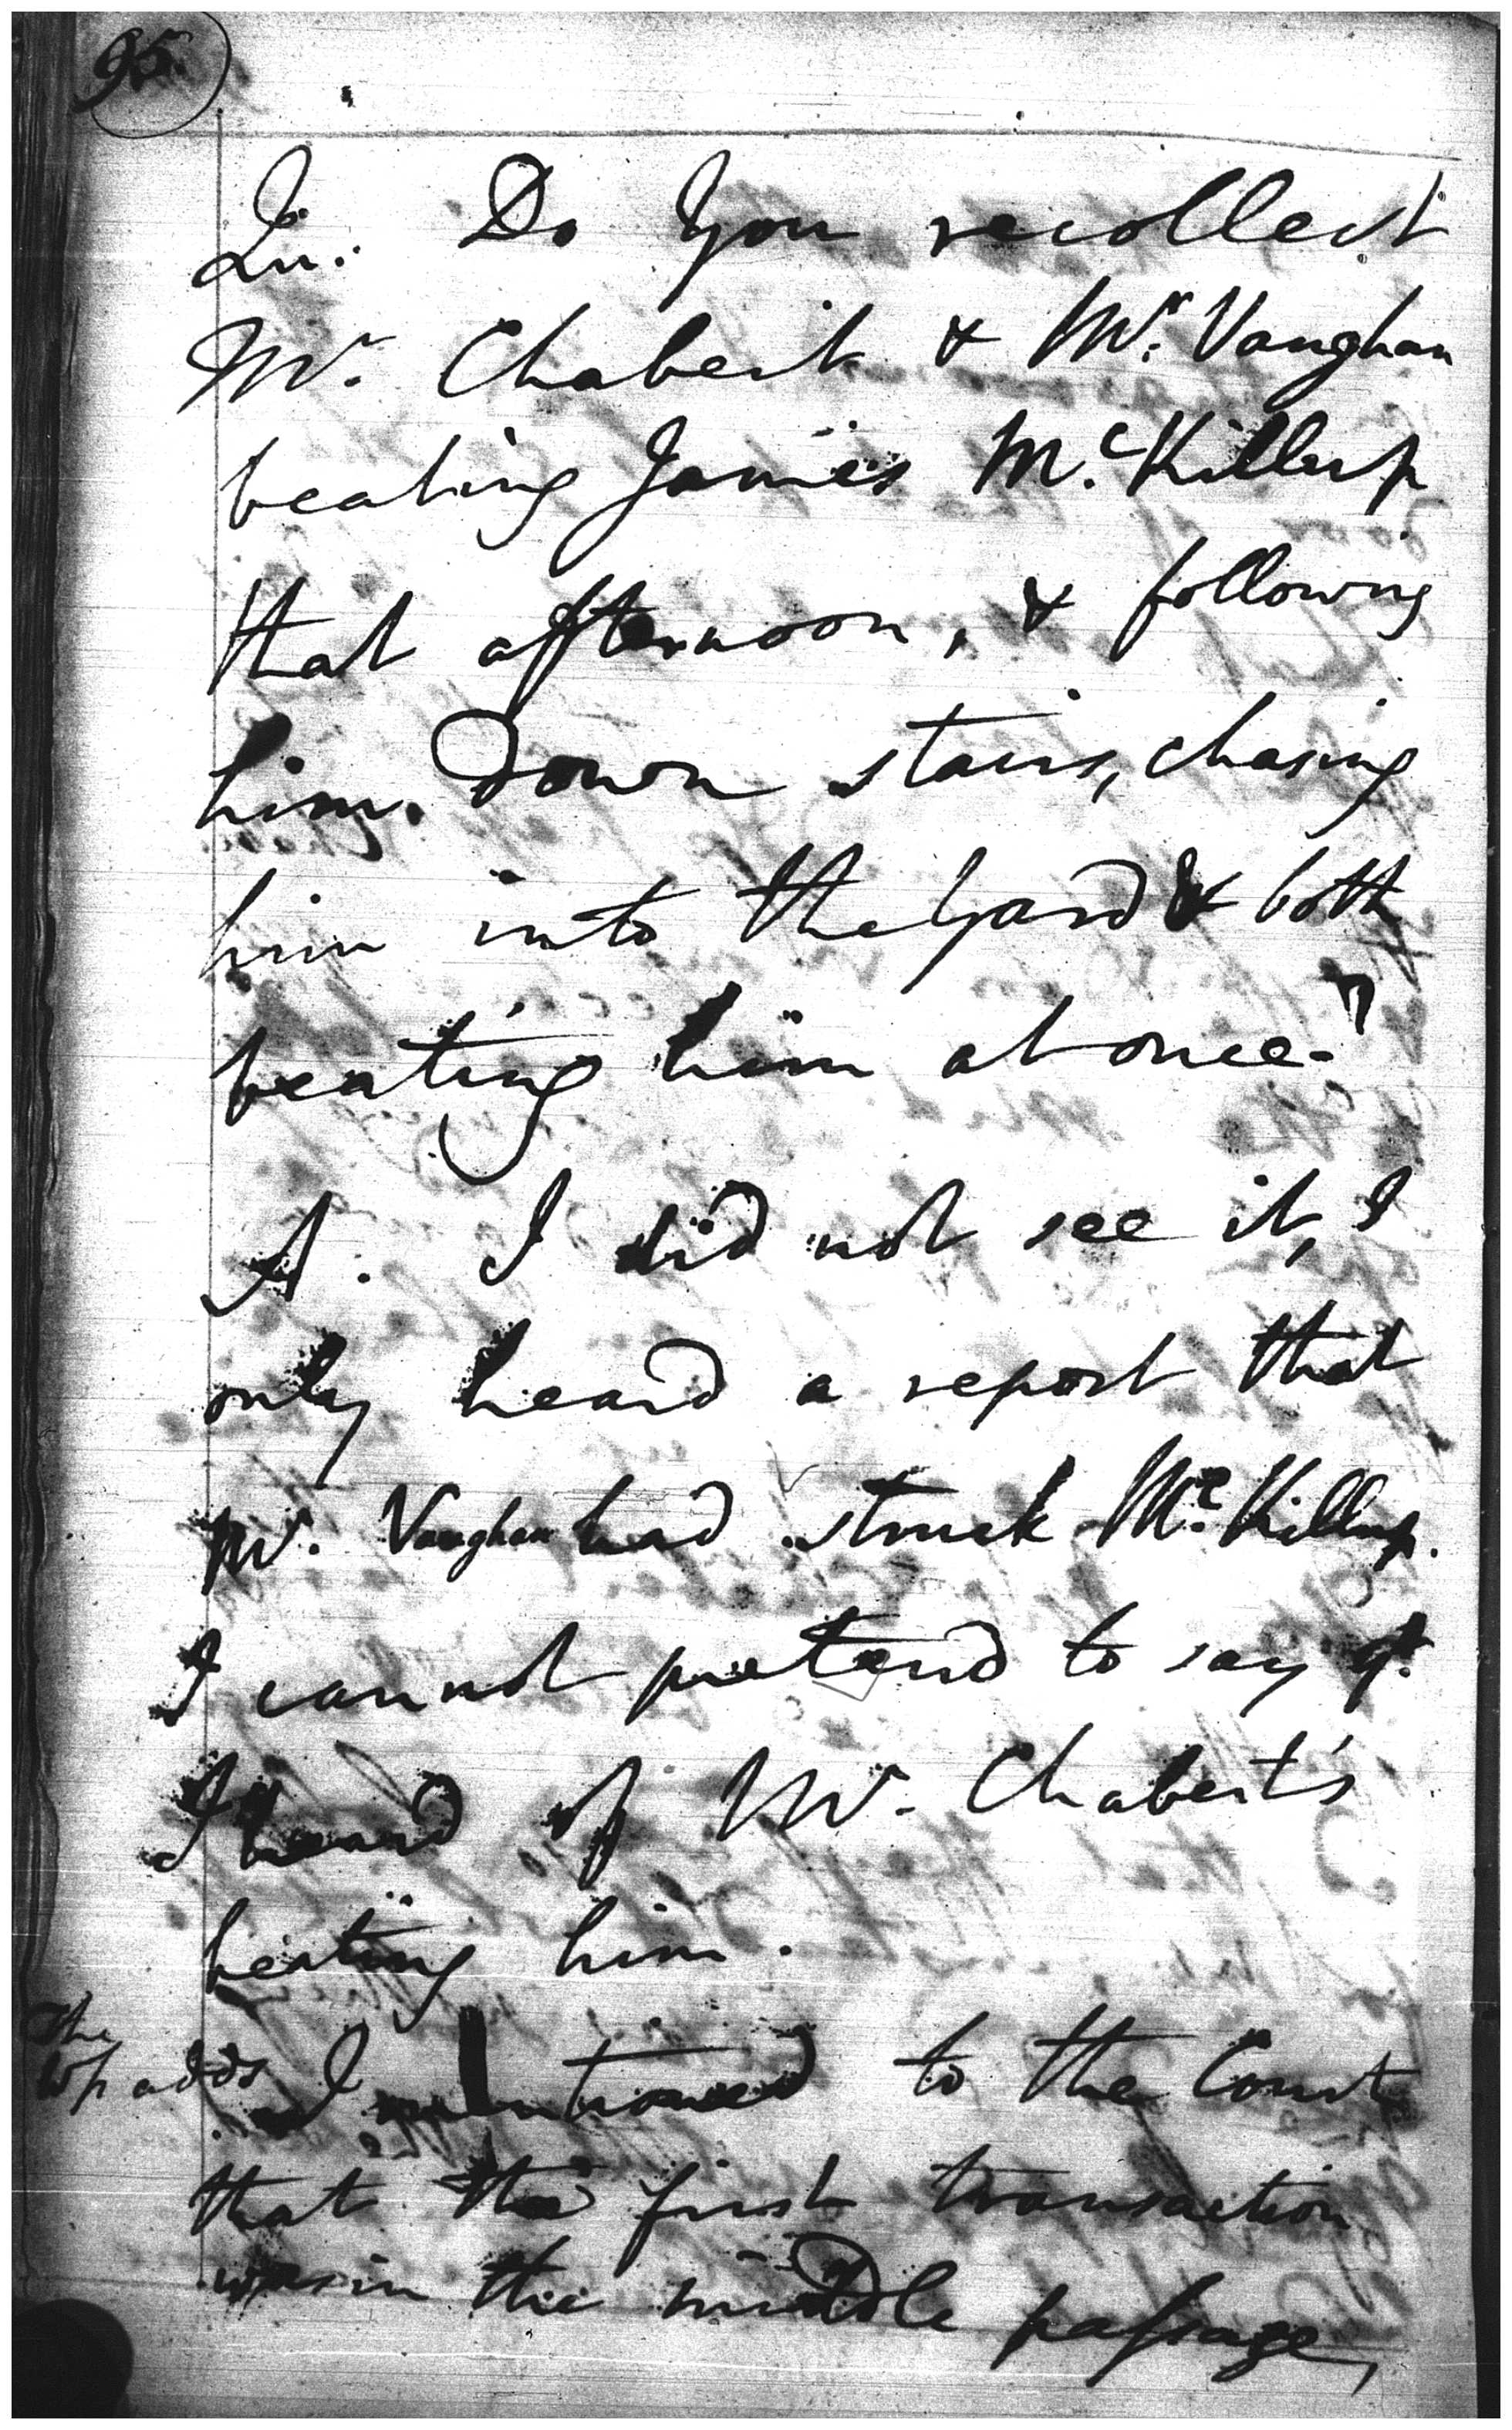 95.
Qu. Do You recollect
Mr. Chabert & Mr. Vaughan
beating James Mc. Killup
that afternoon, & following
him down stairs, chasing
him into the Yard & both
beating him at once?
A. I did not see it, I
only heard a report that
Mr. Vaughan had struck Mc. Killup.
I cannot pretend to say yt.
I heard of Mr. Chabert's
beating him.
The
Wp adds I mentioned to the Court
that the first transaction
was in the middle passage,